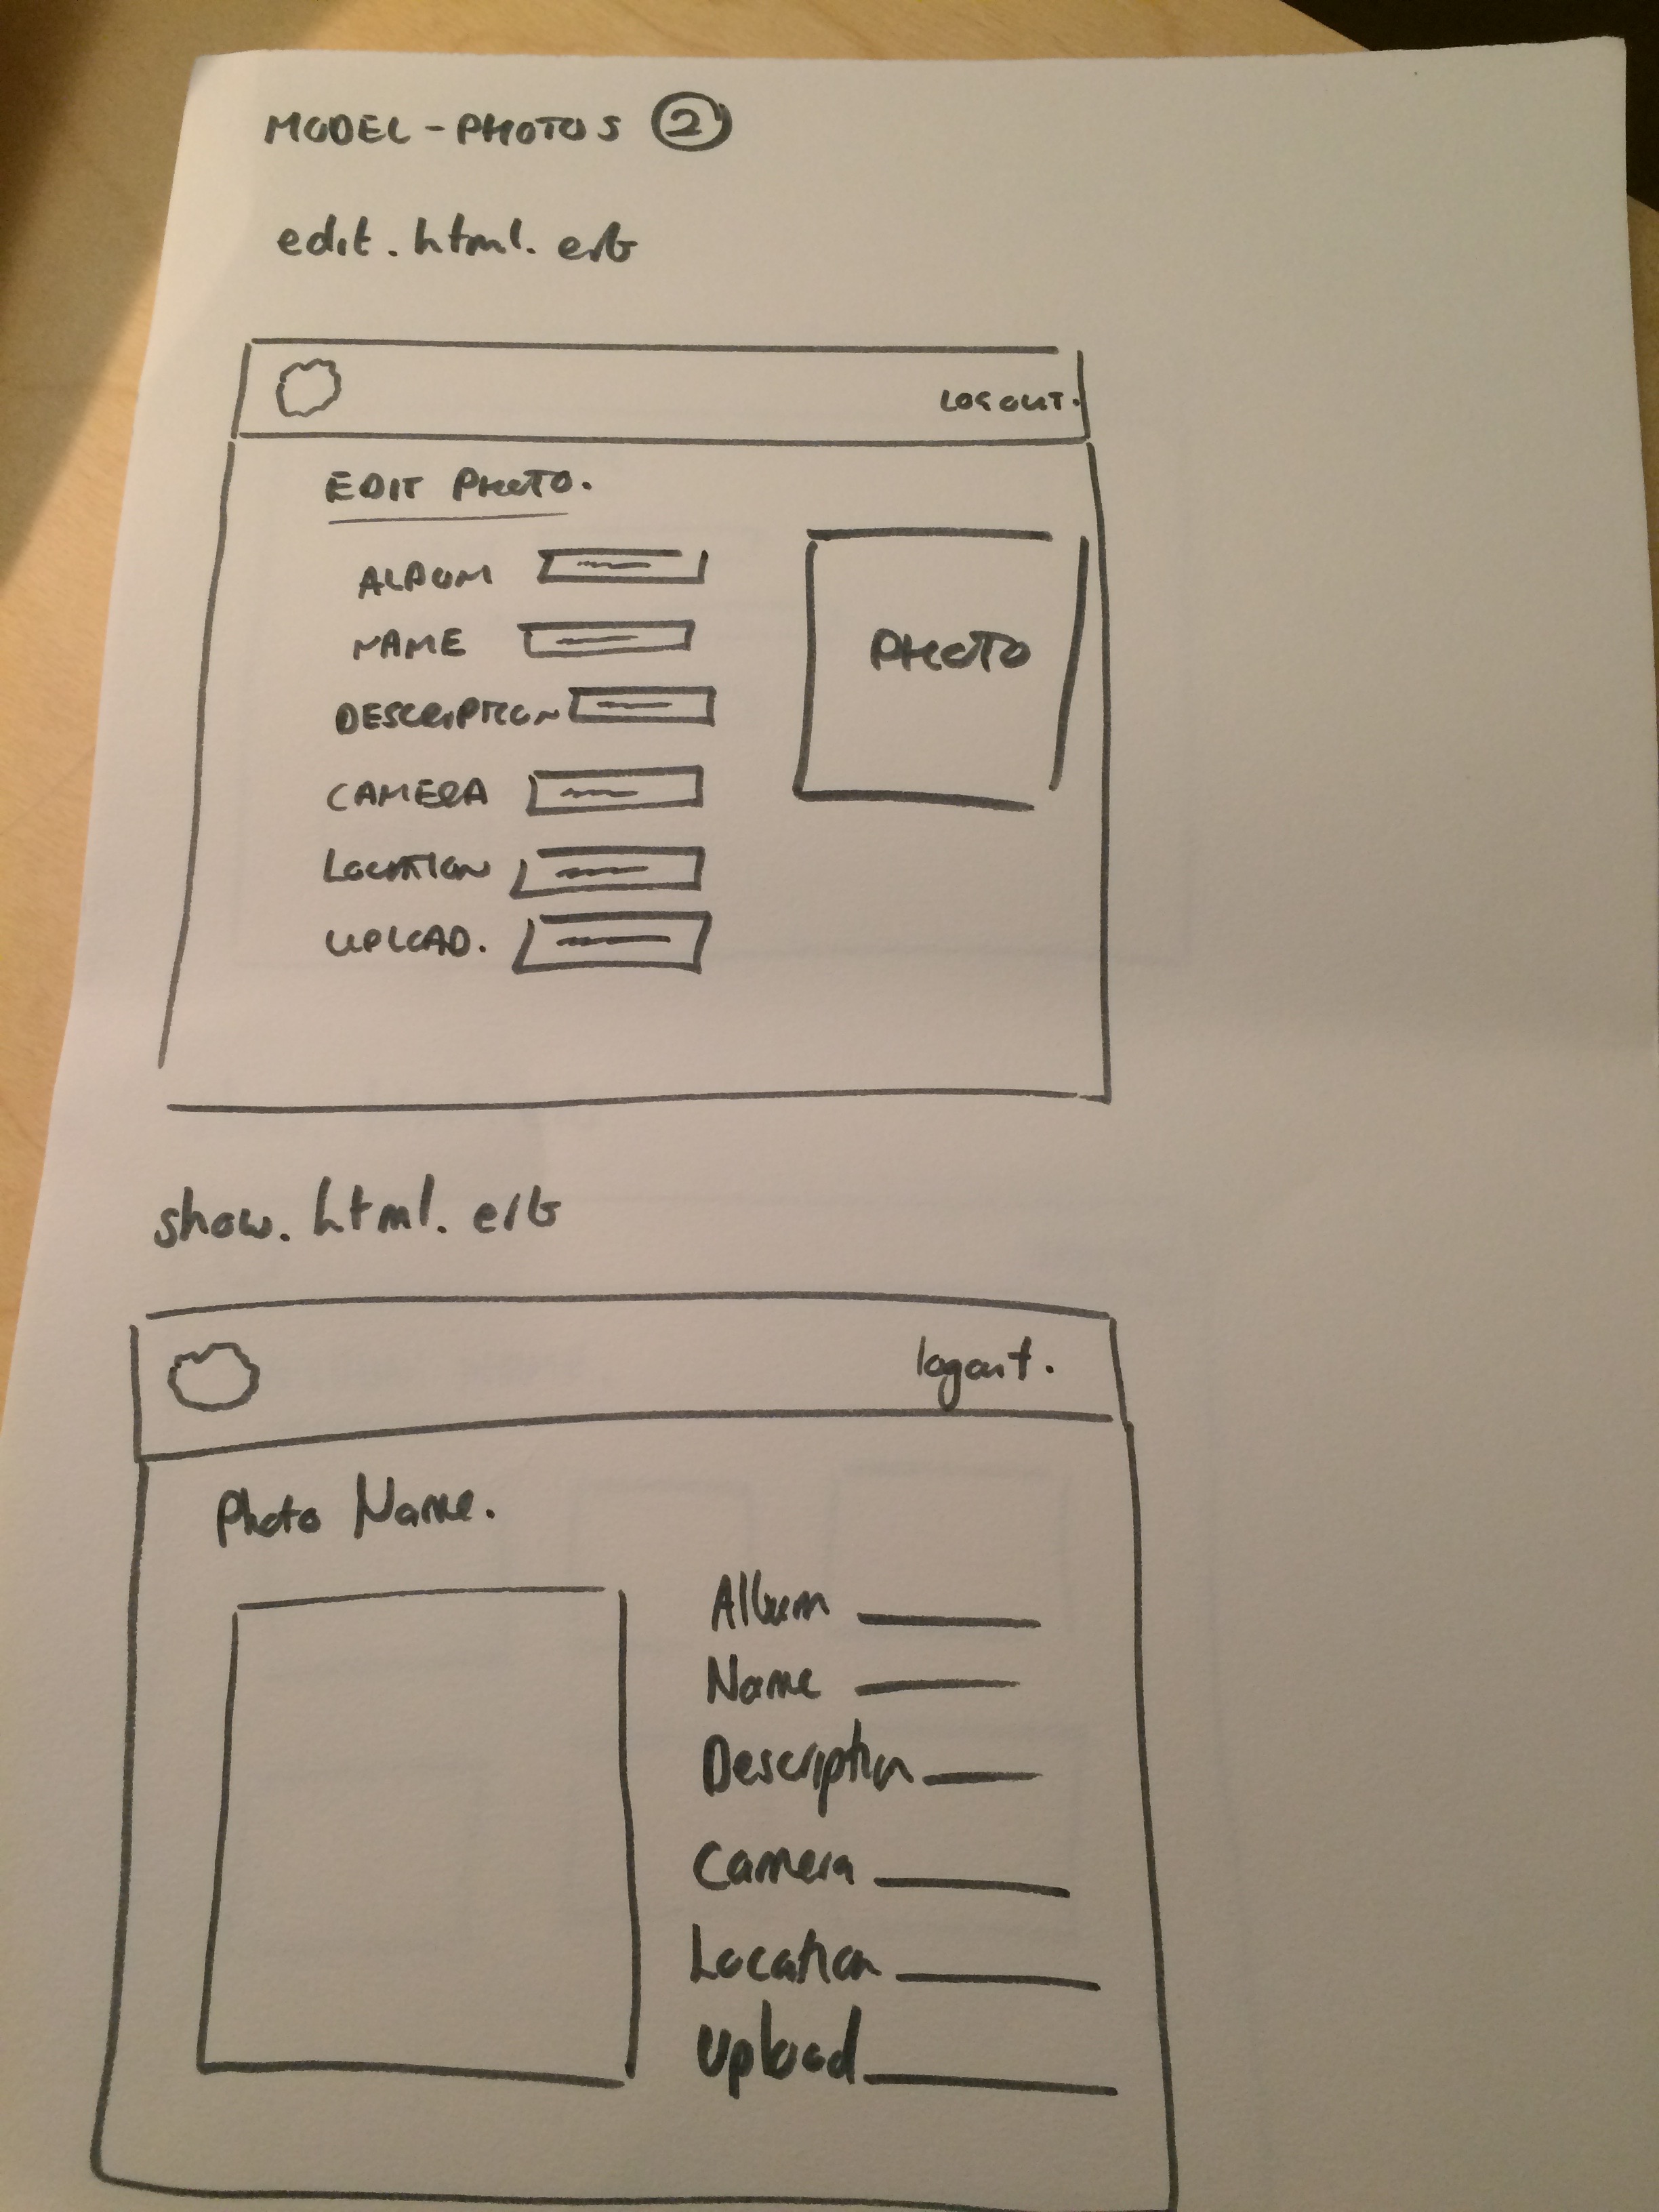 MODEL - PHOTOS 2
edit.html.erb
LOGOUT.
EDIT PHOTO.
ALBUM
NAME
DESCRIPTION
CAMERA
LOCATION
UPLOAD.
PHOTO
show.html.erb
logout.
Photo Name.
Album
Name
Description
Camera
Location
Upload